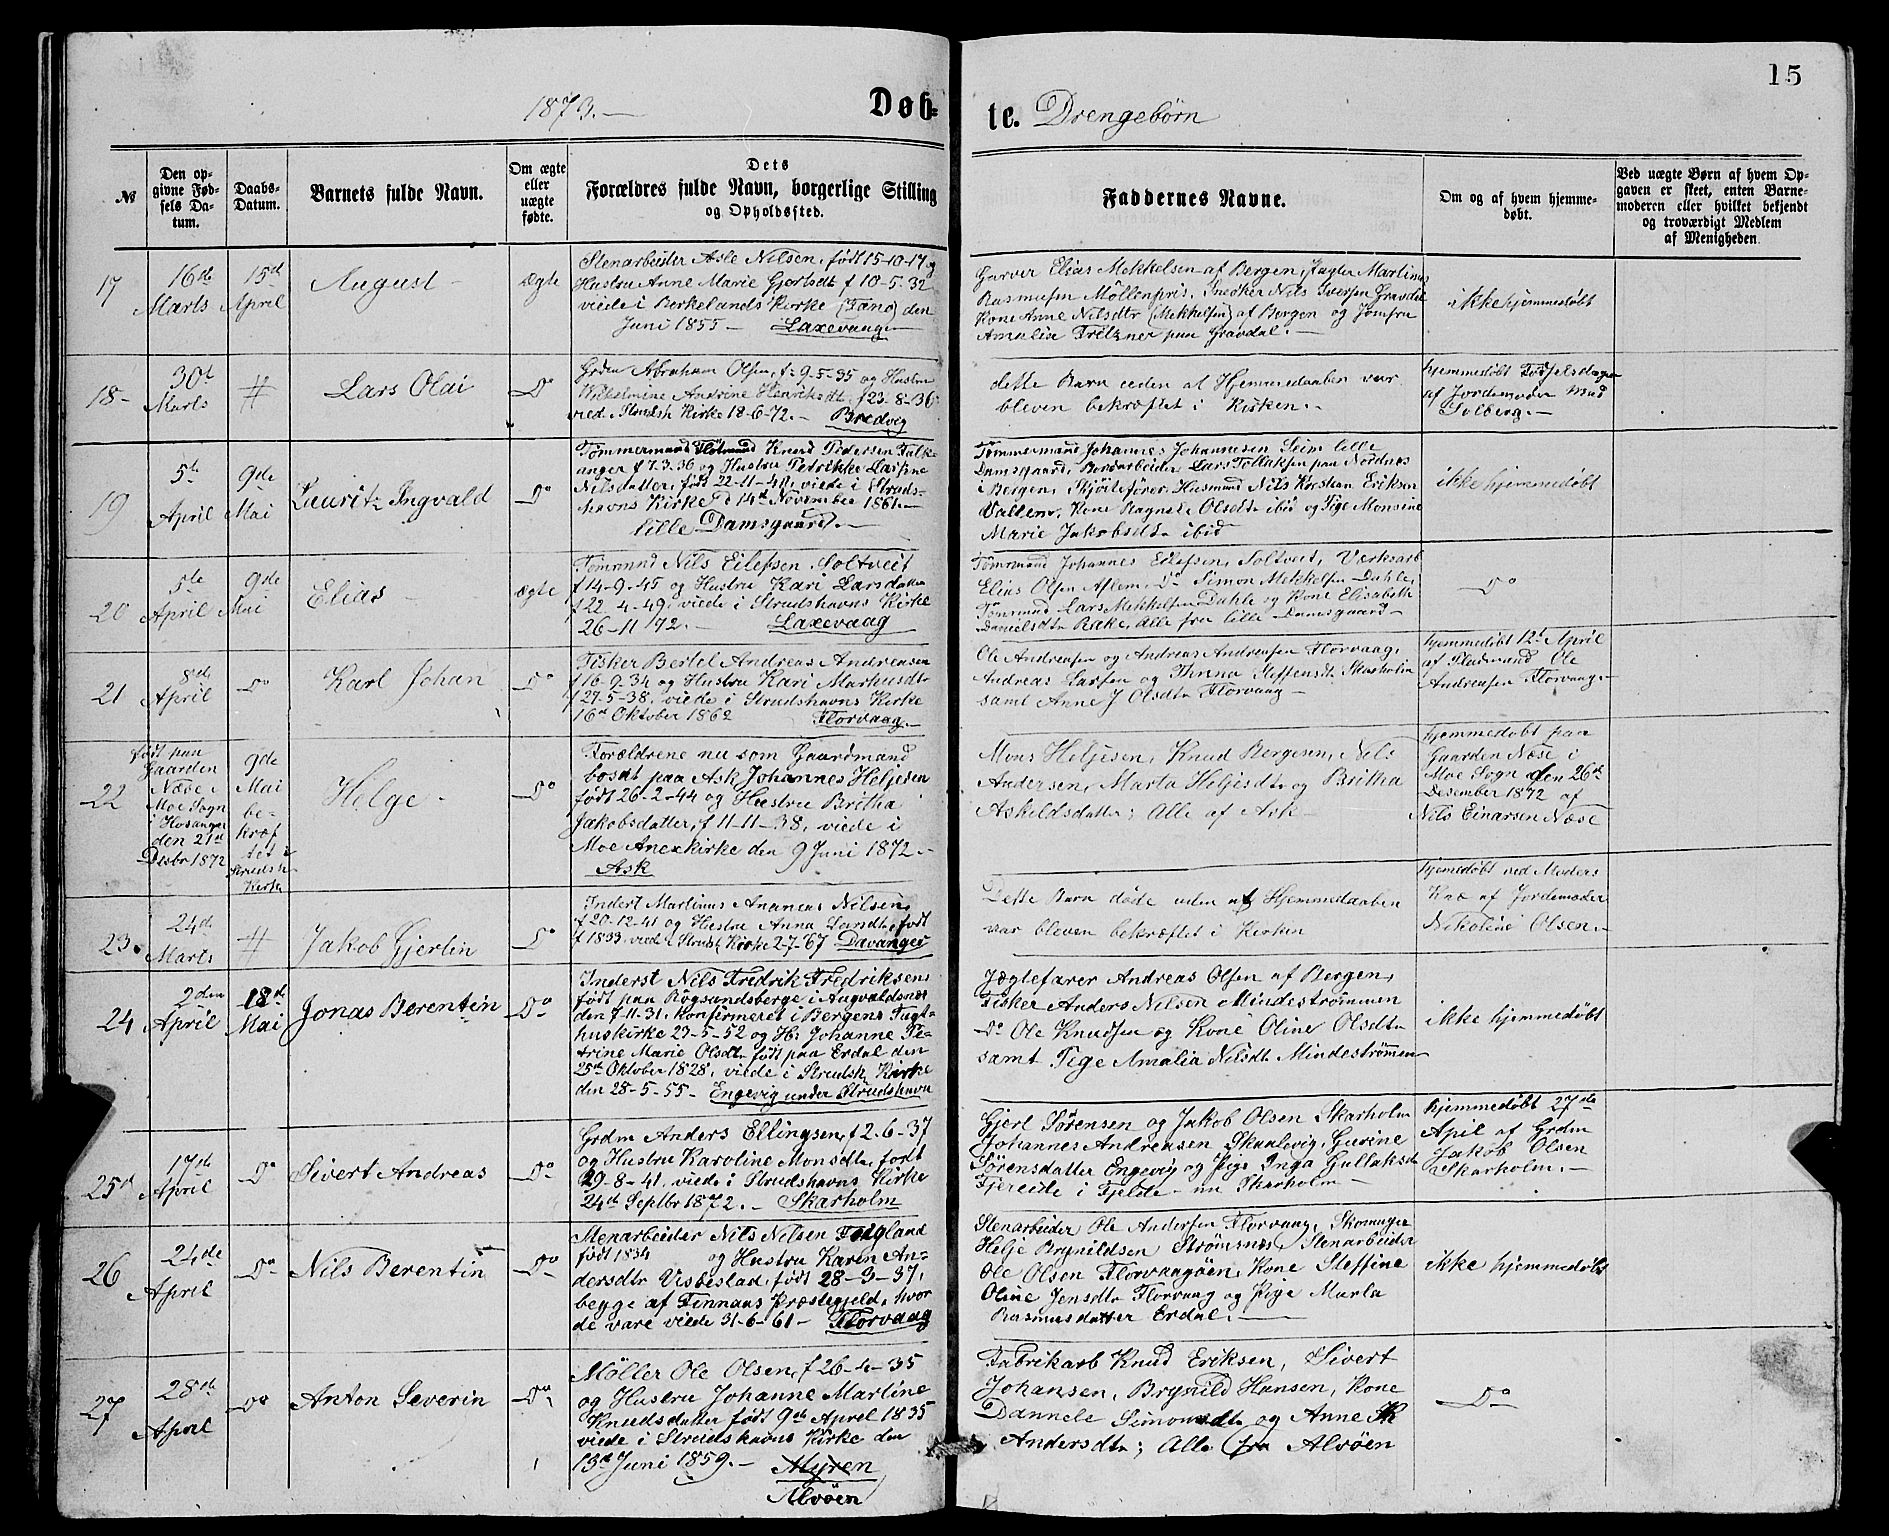 15
1873.
Døb-
te. Drengebørn
№
Den op-
givne Fød-
sels Da-
tum.
Daabs-
Datum.
Barnets fulde Navn.
Om ægte
eller
uægte
fødte.
Dets
Forældres fulde Navn, borgerlige Stilling
og Opholdssted.
Faddernes Navne.
Om og af hvem hjemme-
døbt.
Ved uægte Børn af hvem Op-
gaven er skeet, enten Barne-
moderen eller hvilket bekjendt
og troværdigt Medlem
af Menigheden.
17
16de
Marts
15de
April
August
Ægte
Stenarbeider Asle Nilsen, født 15-10-17 og
Hustru Anne Marie Gjertsdt f 10-5-32
viede i Berkelands Kirke (Fano) den
Juni 1855 - Laxevaag
Garver Elias Mekkelsen af Bergen, Martinus
Rasmusen Möllenpris, Snedker Nils Iversen Gravdal
Kone Anne Nilsdtr (Mekkelsen) af Bergen og Jomfru
Amalia Fritzner paa Gravdal. -
ikke hjemmedøbt
18-
30t
Marts
#
Lars Olai
Do
Grdm Abraham Olsen, f. 9-5-35 og Hustru
Wilhelmine Andrine Henriksdt. f 23-8-36
vied. Strudsh Kirke 18-6-72. - Bredvig
dette Barn uden at Hjemmedaaben var
bleven bekræftet i Kirken. -
hjemmedøbt Fødselsdagen
af Jordemoder Mad
Solberg. -
19
5te
April
9de
Mai
Lauritz Ingvald
Do
Tømmermand Knud Pedersen Falk-
anger f 7.3.36 og Hustru Petrikke Larsine
Nilsdatter, født 22-11-41, viede i Struds-
havns Kirke d 14de November 1861. -
lille Damsgaard. -
Tømmermand Johannes Johannesen Seim lille
Damsgaard, Lars Tollaksen paa Nordnes
i Bergen, Skjøitefører Husmand Nils Korsten Eriksen
Vallen, Kone Ragnes Olsdtr ibid og Pige Monsine
Marie Jakobsdtr ibid
ikke hjemmedøbt
20
5te
April
9de
Mai
Elias
ægte
Tømmand Nils Eilefsen Soltveit
f 14-9-45 og Hustru Kari Larsdatter
f 22-4-49, viede i Strudshavns Kirke
26-11 72. - Laxevaag
Tømrmand Johannes Eilefsen, Soltveit, Værksarb
Elias Olsen, Do Simon Mekkelsen Dahle,
Tømrmnd Lars Mekkelsen Dahle og Kone Elisabeth
Danielsdtr Rake, Alle fra lille Damsgaard -
Do
21
8de
April
Do
Karl Johan
Do
Fisker Bertel Andreas Andreasen
f 16-9-34 og Hustru Kari Markusdtr
f 27-5-38, viede i Strudshavns Kirke
16de Oktober 1862 Florvaag. -
Ole Andreasen og Andreas Andreasen Florvaag,
Andreas Larsen og Steffensdt Skarholm
samt Anne J Olsdtr Florvaag -
hjemmedøbt 12t April
af Pladsmand Ole
Andreasen Florvaag -
22
født paa
Gaarden
Næse i
Moe Sogn
i Hosanger
den 21de
Desbr 1872
9de
Mai
be-
kræf
tet i
Strudsh
Kirke
Helge -
Do
Forældrene nu som Gaardmand
bosat paa Ask Johannes Heljesen
født 26-2-44 og Hustru Britha
Jakobsdatter, f 11-11-38, viede i
Moe Anexkirke den 9 Juni 1872. -
Ask
Mons Heljesen, Knud Bergesen, Nils
Andersen, Marta Heljesdtr og Britha
Askeldsdatter; Alle af Ask -
hjemmedøbt paa
Gaarden Næse i
Moe Sogn den 26de
Desember 1872 af
Nils Einarsen Næse
23
24de
Marts
#
Jakob Gjertin
Do
Inderst Martinus Ananias Nilsen,
f 20-12-41 og Hustru Anna født
f 1833 viede i Strudsh Kirke 2-7-67 Davanger
Dette Barn døde uden at Hjemmedaaben
var bleven bekræftet i Kirken
hjemedøbt ved Moders
Knæ af Jordemoder
Nikoline Olsen. -
24
2den
April
18de
Mai
Jonas Berentin
Do
Inderst Nils Fredrik Fredriksen,
født paa Røgsundsberge i Augvaldsnæs
den 7-11-31, konfirmeret i Bergens Tugt-
huskirke 23-5-52 og H. Johanne Pe-
trine Marie Olsdtr født paa Erdal den
25de Oktober 1828, viede i Strudsh Kirke
den 28-5-55 - Engevig under Strudshavn
Jægtefører Andreas Olsen af Bergen,
Fisker Anders Nilsen Mindestrømmen
Do Ole Knudsen og Kone Oline Olsdtr
samt Pige Amalia Nilsdt Mindestrømmen
ikke hjemmedøbt
25d
17de
April
Do
Sivert Andreas
Do
Grdm Anders Ellingsen, f 2-6-37
og Hustru Karoline Monsdtr, født
29-8-41, viede i Strudshavns Kirke
24de Septbr 1872. - Skarholm
Gjert Sørensen og Jakob Olsen Skarholm
Johannes Andreasen Skaalevig, Gurine
Sørensdatter Engevig og Pige Inga Gullaksdt
Fjereide i Fjelde - nu Skarholm -
hjemmedøbt 27de
Apil af Grdm
Jakob Olsen
Skarholm. -
26
24de
April
Do
Nils Berentin
Do
Stenarbeider Nils Nilsen Fogland
født 1834 og Hustru Karen An-
dersdtr Visbestad, født 28-3-37,
begge af Finnaas Præstegjeld, hvor
de vare viede 31-6-61 - Florvaag
Stenarbeider Ole Andersen Florvaag, Skomager
Helje Brynildsen Strømsnes, Stenarbeider
Ole Olsen Florvaagøen, Kone Steffine
Oline Jensdtr Florvaag og Pige Marta
Rasmusdatter Erdal. -
ikke hjemmedøbt
27
28de
April
Do
Anton Severin
Do
Møller Ole Olsen, f 26-4-35
og Hustru Johanne Martine
Knudsdatter født 9de April 1835
viede i Strudshavns Kirke den
13de Juni 1859. - Myren
Alvöen
Fabrikarb Knud Eriksen, Sivert
Johansen, Brynild Hansen, Kone
Dannele Simonsdtr og Anne K
Andersdtr; Alle fra Alvöen
Do